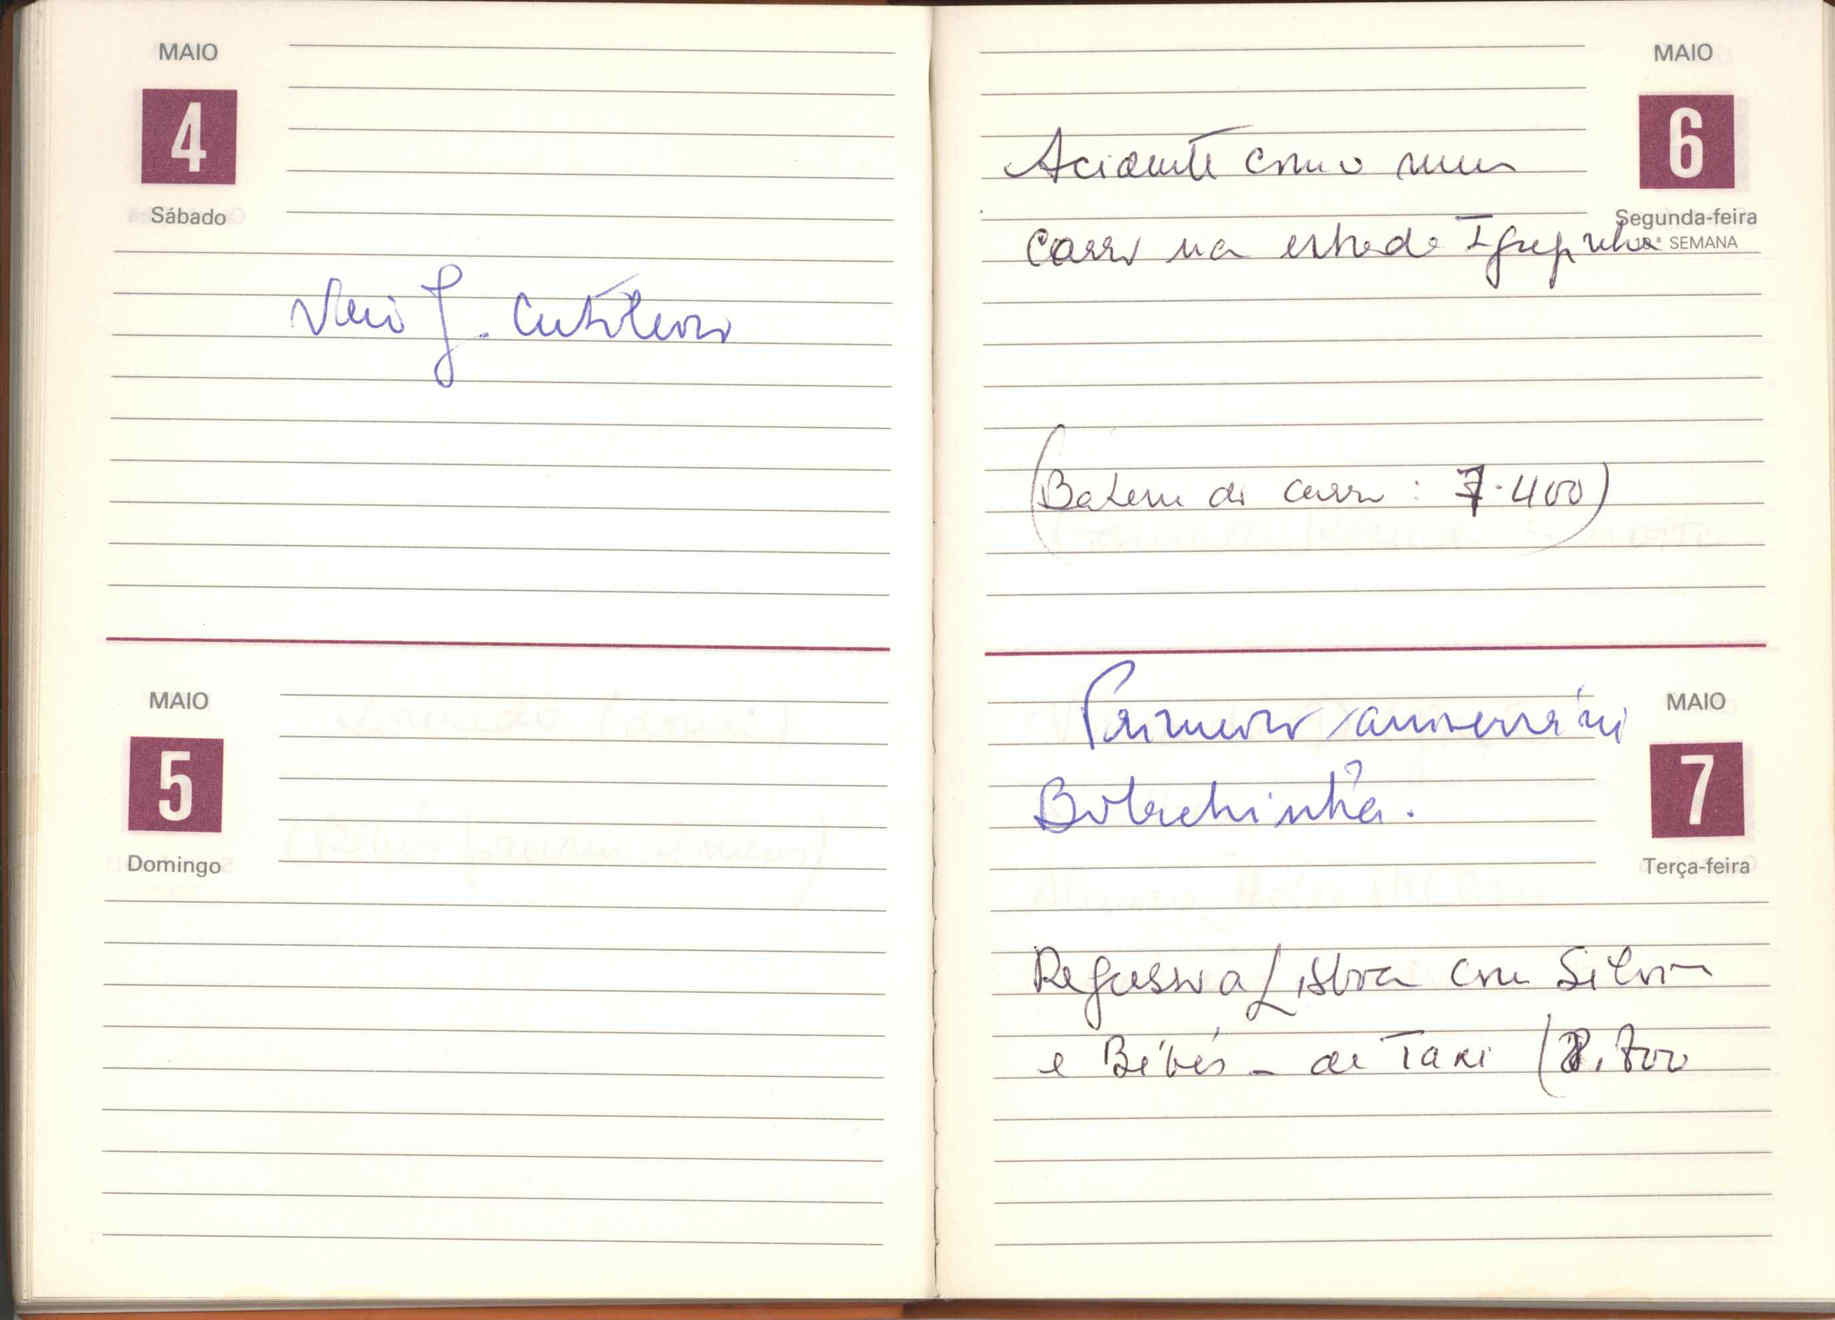 MAIO
4
Sábado
Veio J. Cutileiro
MAIO
5
Domingo
MAIO
6
Segunda-feira
SEMANA
Acidente com o meu
carro na estrada Igrejinha
(Bateu di carro : 7.400)
MAIO
7
Terça-feira
Primeiro aniversário
Bolachinha.
Regresso a Lisboa com Sílvia
e Bébés - de Taxi (